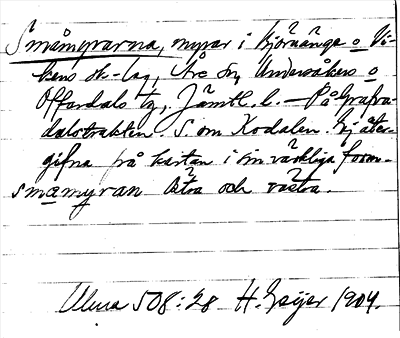 Småmyrarna, myrar i Björnänge o Vi-
kens sk-lag, Åre sn, Undersåkers o
Offerdals tg, Jämtl. l. — På Grafva-
dalstrakten. S. om Kodalen. Ej åter-
gifna på kartan i sin verkliga form.
småmyran Östra och västra.
Ulma 508:28 H. Geijer 1904.